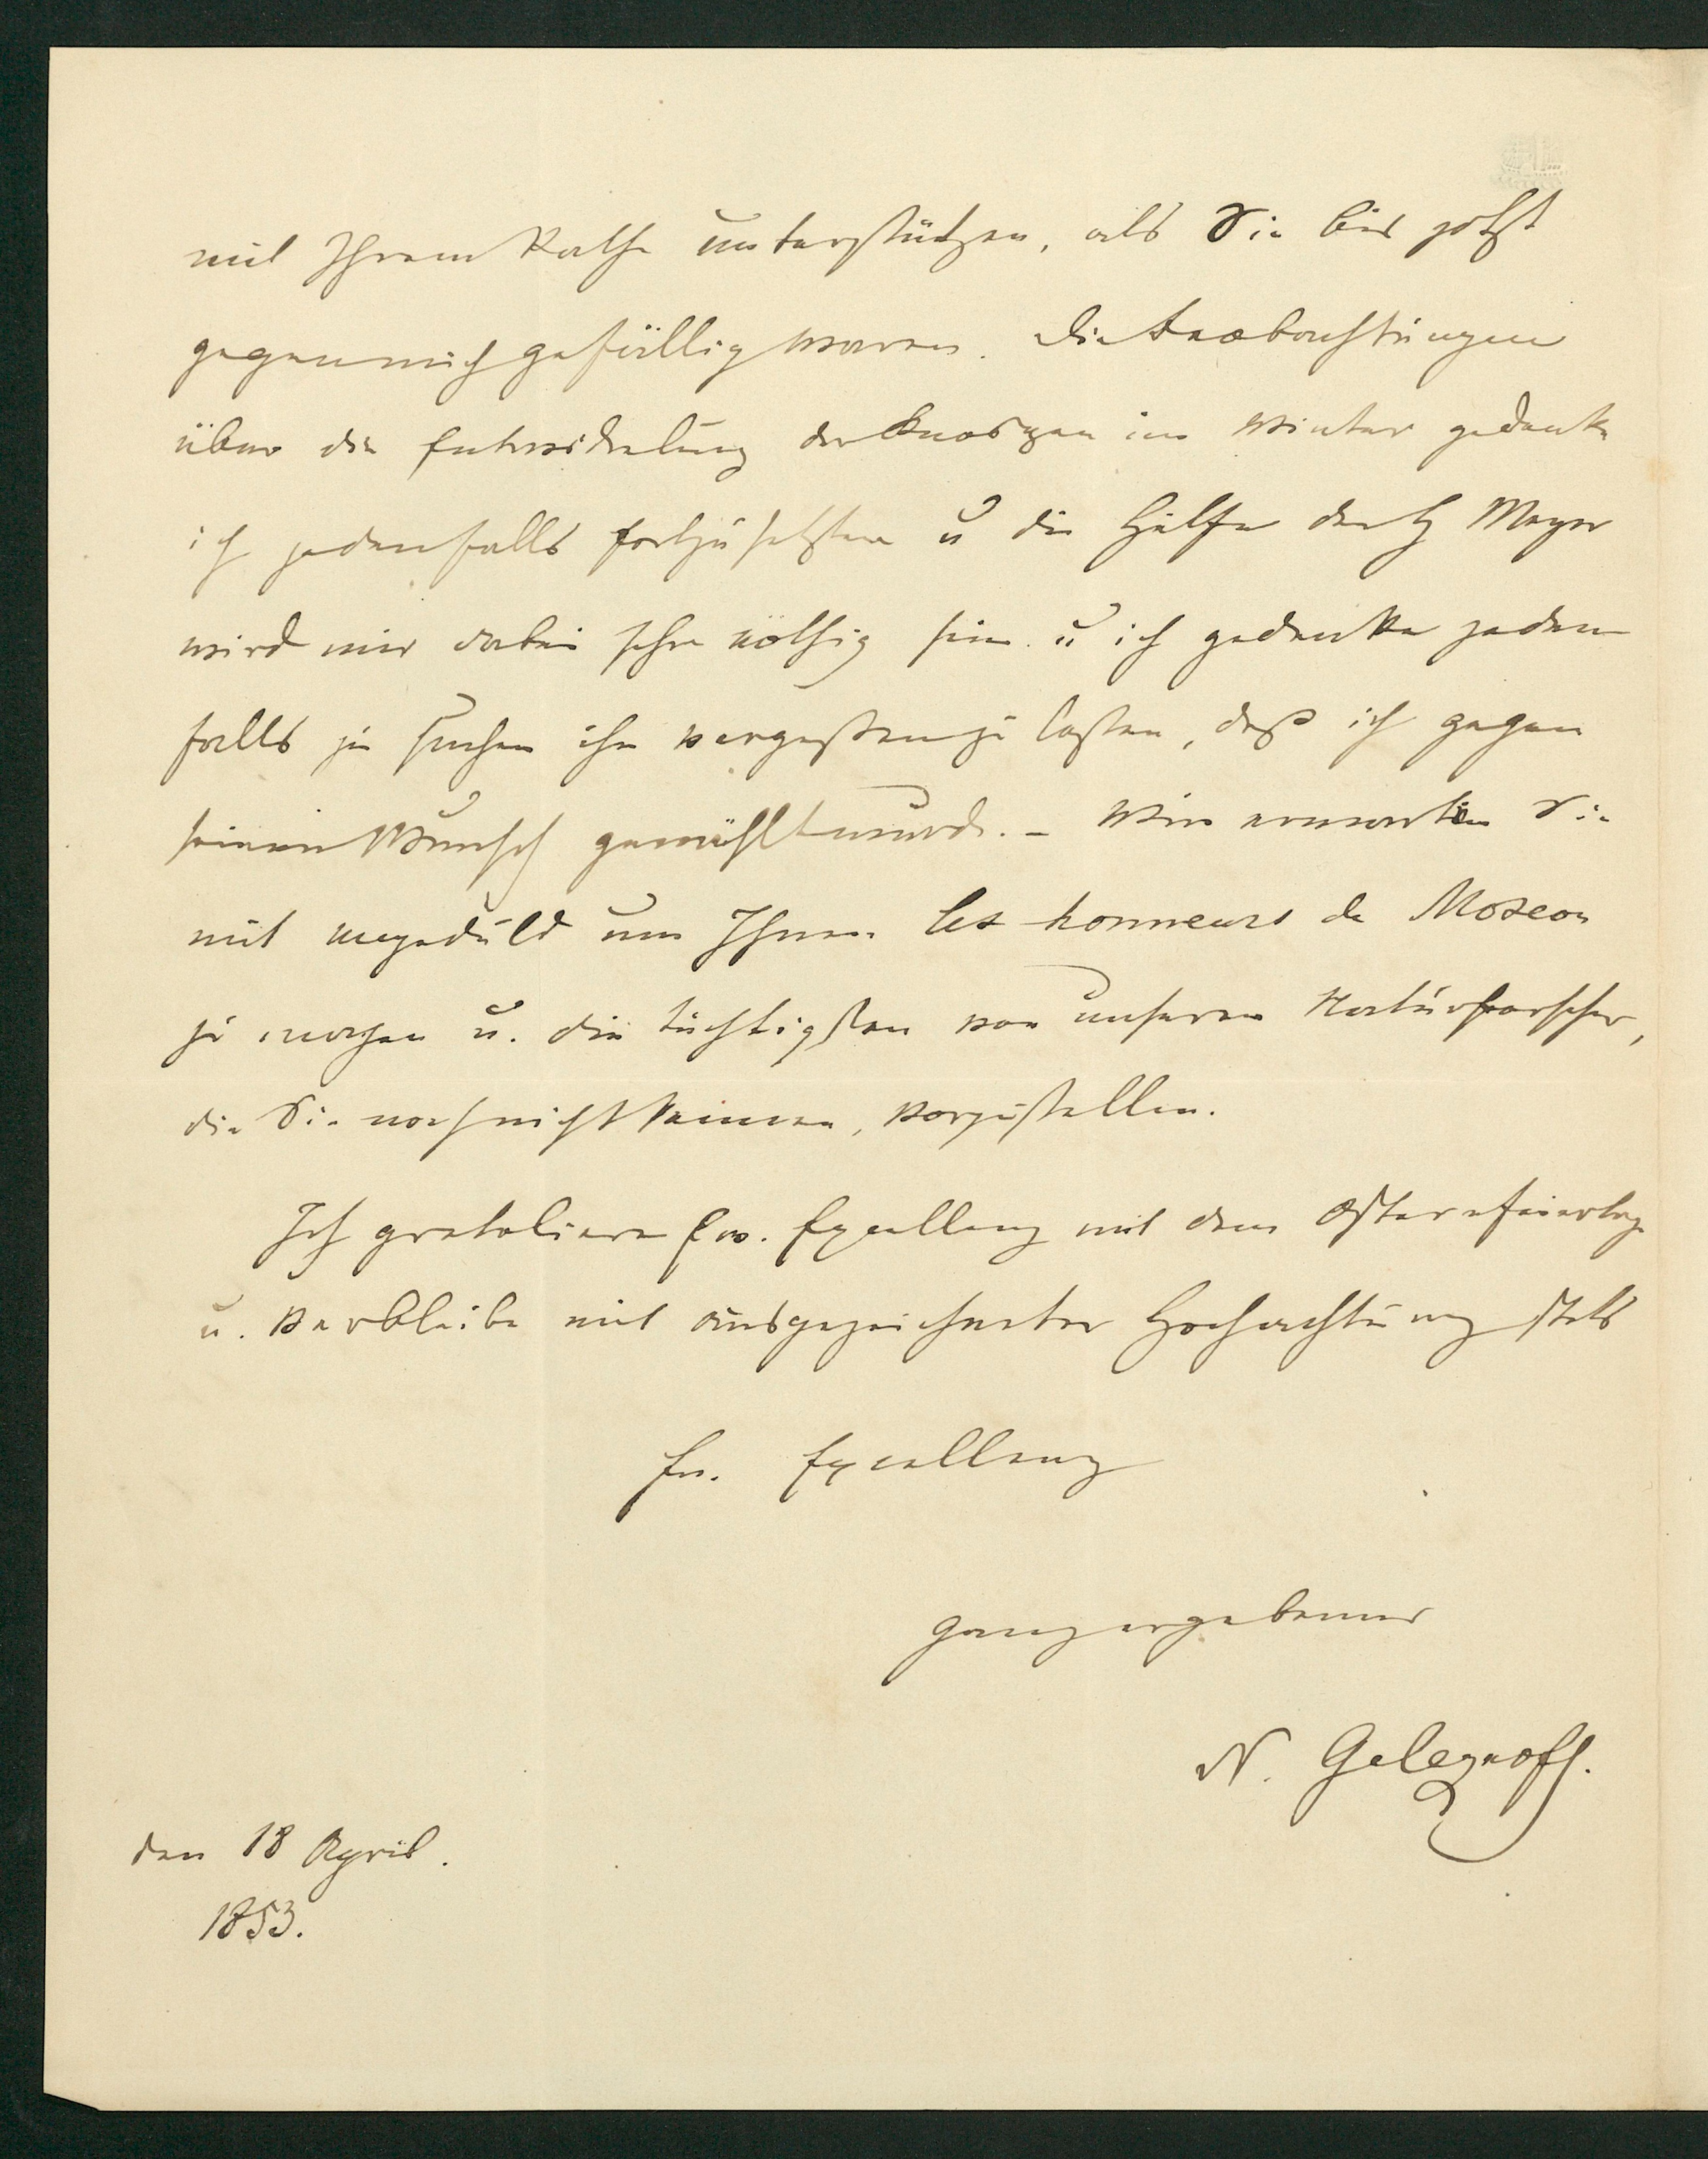 mit Ihrem Rathe unterstützen, als Sie bis jetzt
gegen mich gefällig waren. Die Beobachtungen
über die Entwickelung der Knospen im Winter gedenke
ich jedenfalls fortzusetzen u die Hülfe des H Meyer
wird mir dabei sehr nöthig sein u ich gedenke jeden
falls zu suchen ihn vergessen zu lassen, daß ich gegen
seinen Wunsch gewählt wurde. – Wir erwarten Sie
mit ungeduld um Ihnen les honneurs de Moscou
zu machen u. die tüchtigsten von unseren Naturforscher,
die Sie noch nicht kennen, vorzustellen.
Ich gratuliere Ew. Excellenz mit dem Osternfeiertage
u. verbleibe mit ausgezeichneter Hochachtung stets
Ew. Excellenz
ganz ergebener
N. Geleznoff.
den 18 April.
1853.